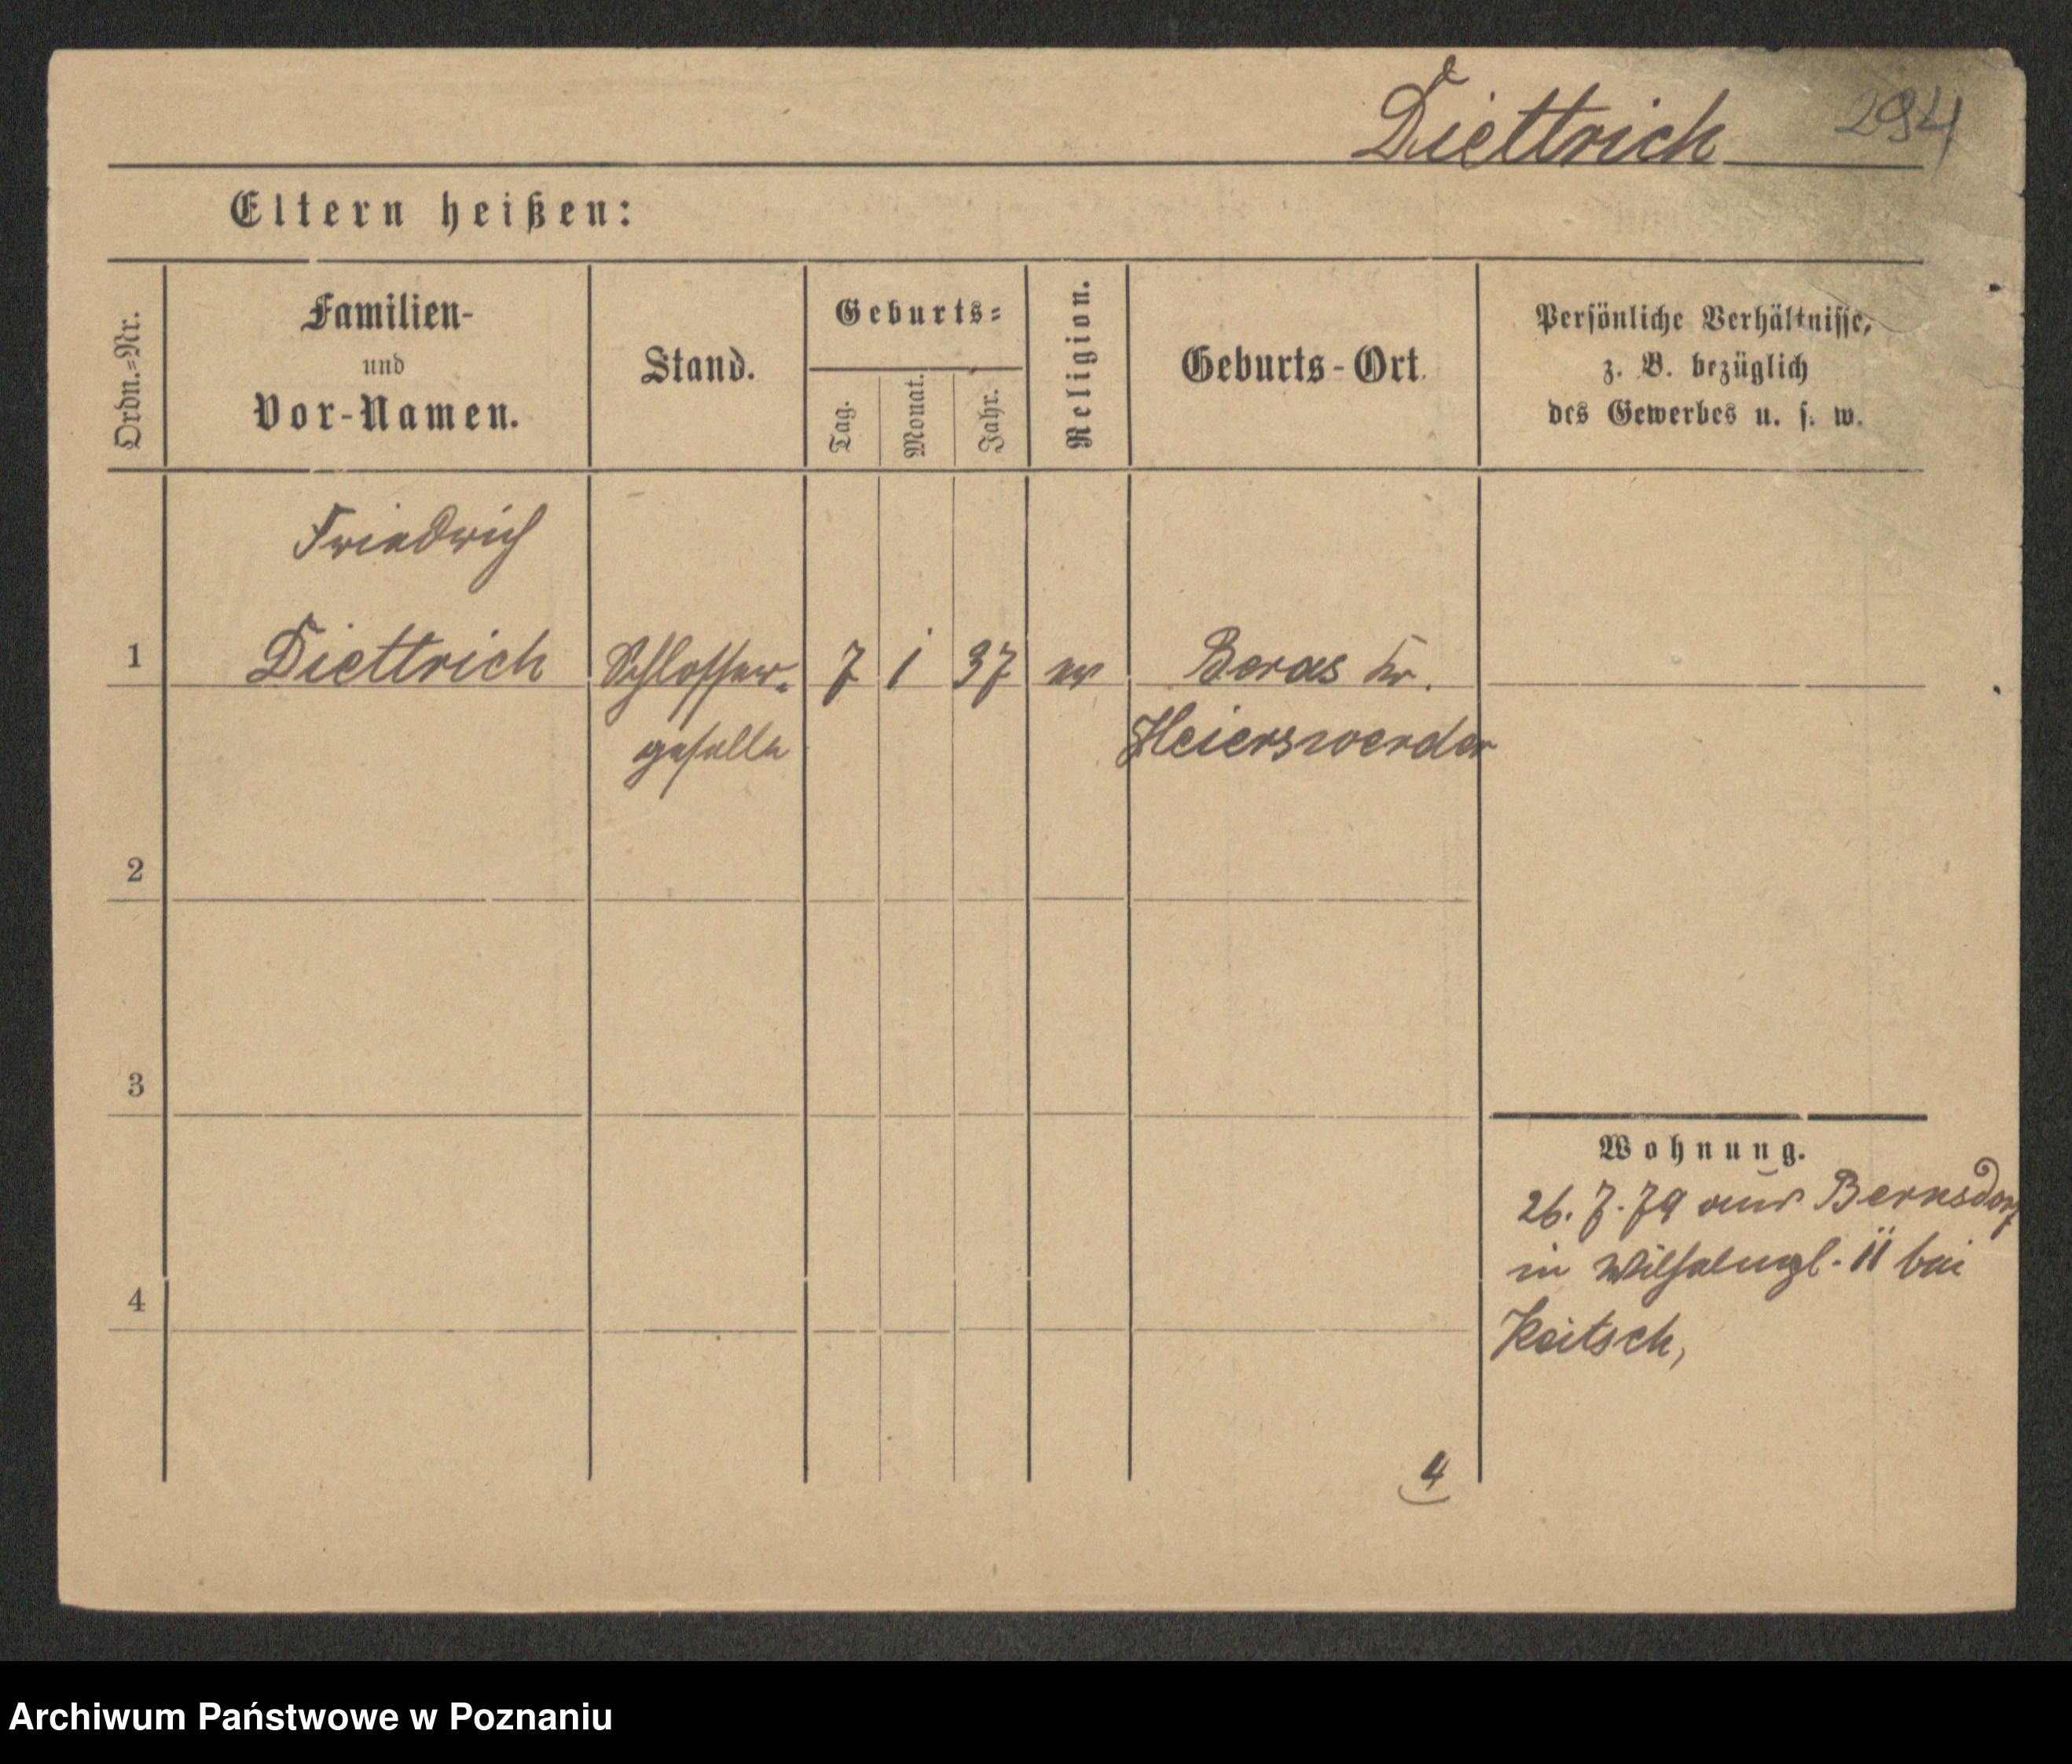 Diettrich 294
Eltern heißen:
Ordn.=Nr.
Familien-
und
Vor-Namen.
Stand.
Geburts=
Tag.
Monat.
Jahr.
Religion.
Geburts-Ort.
Persönliche Verhältnisse,
z. B. bezüglich
des Gewerbes u. s. w.
Friedrich
1 Diettrich Schlosser- 7 1 37 ev Beras Kr.
geselle Heierswerder
2
3
4
Wohnung.
26. 7. 79 aus Bernsdorf
in Wilhelmpl. 11 bei
Keitsch,
4
Archiwum Państwowe w Poznaniu